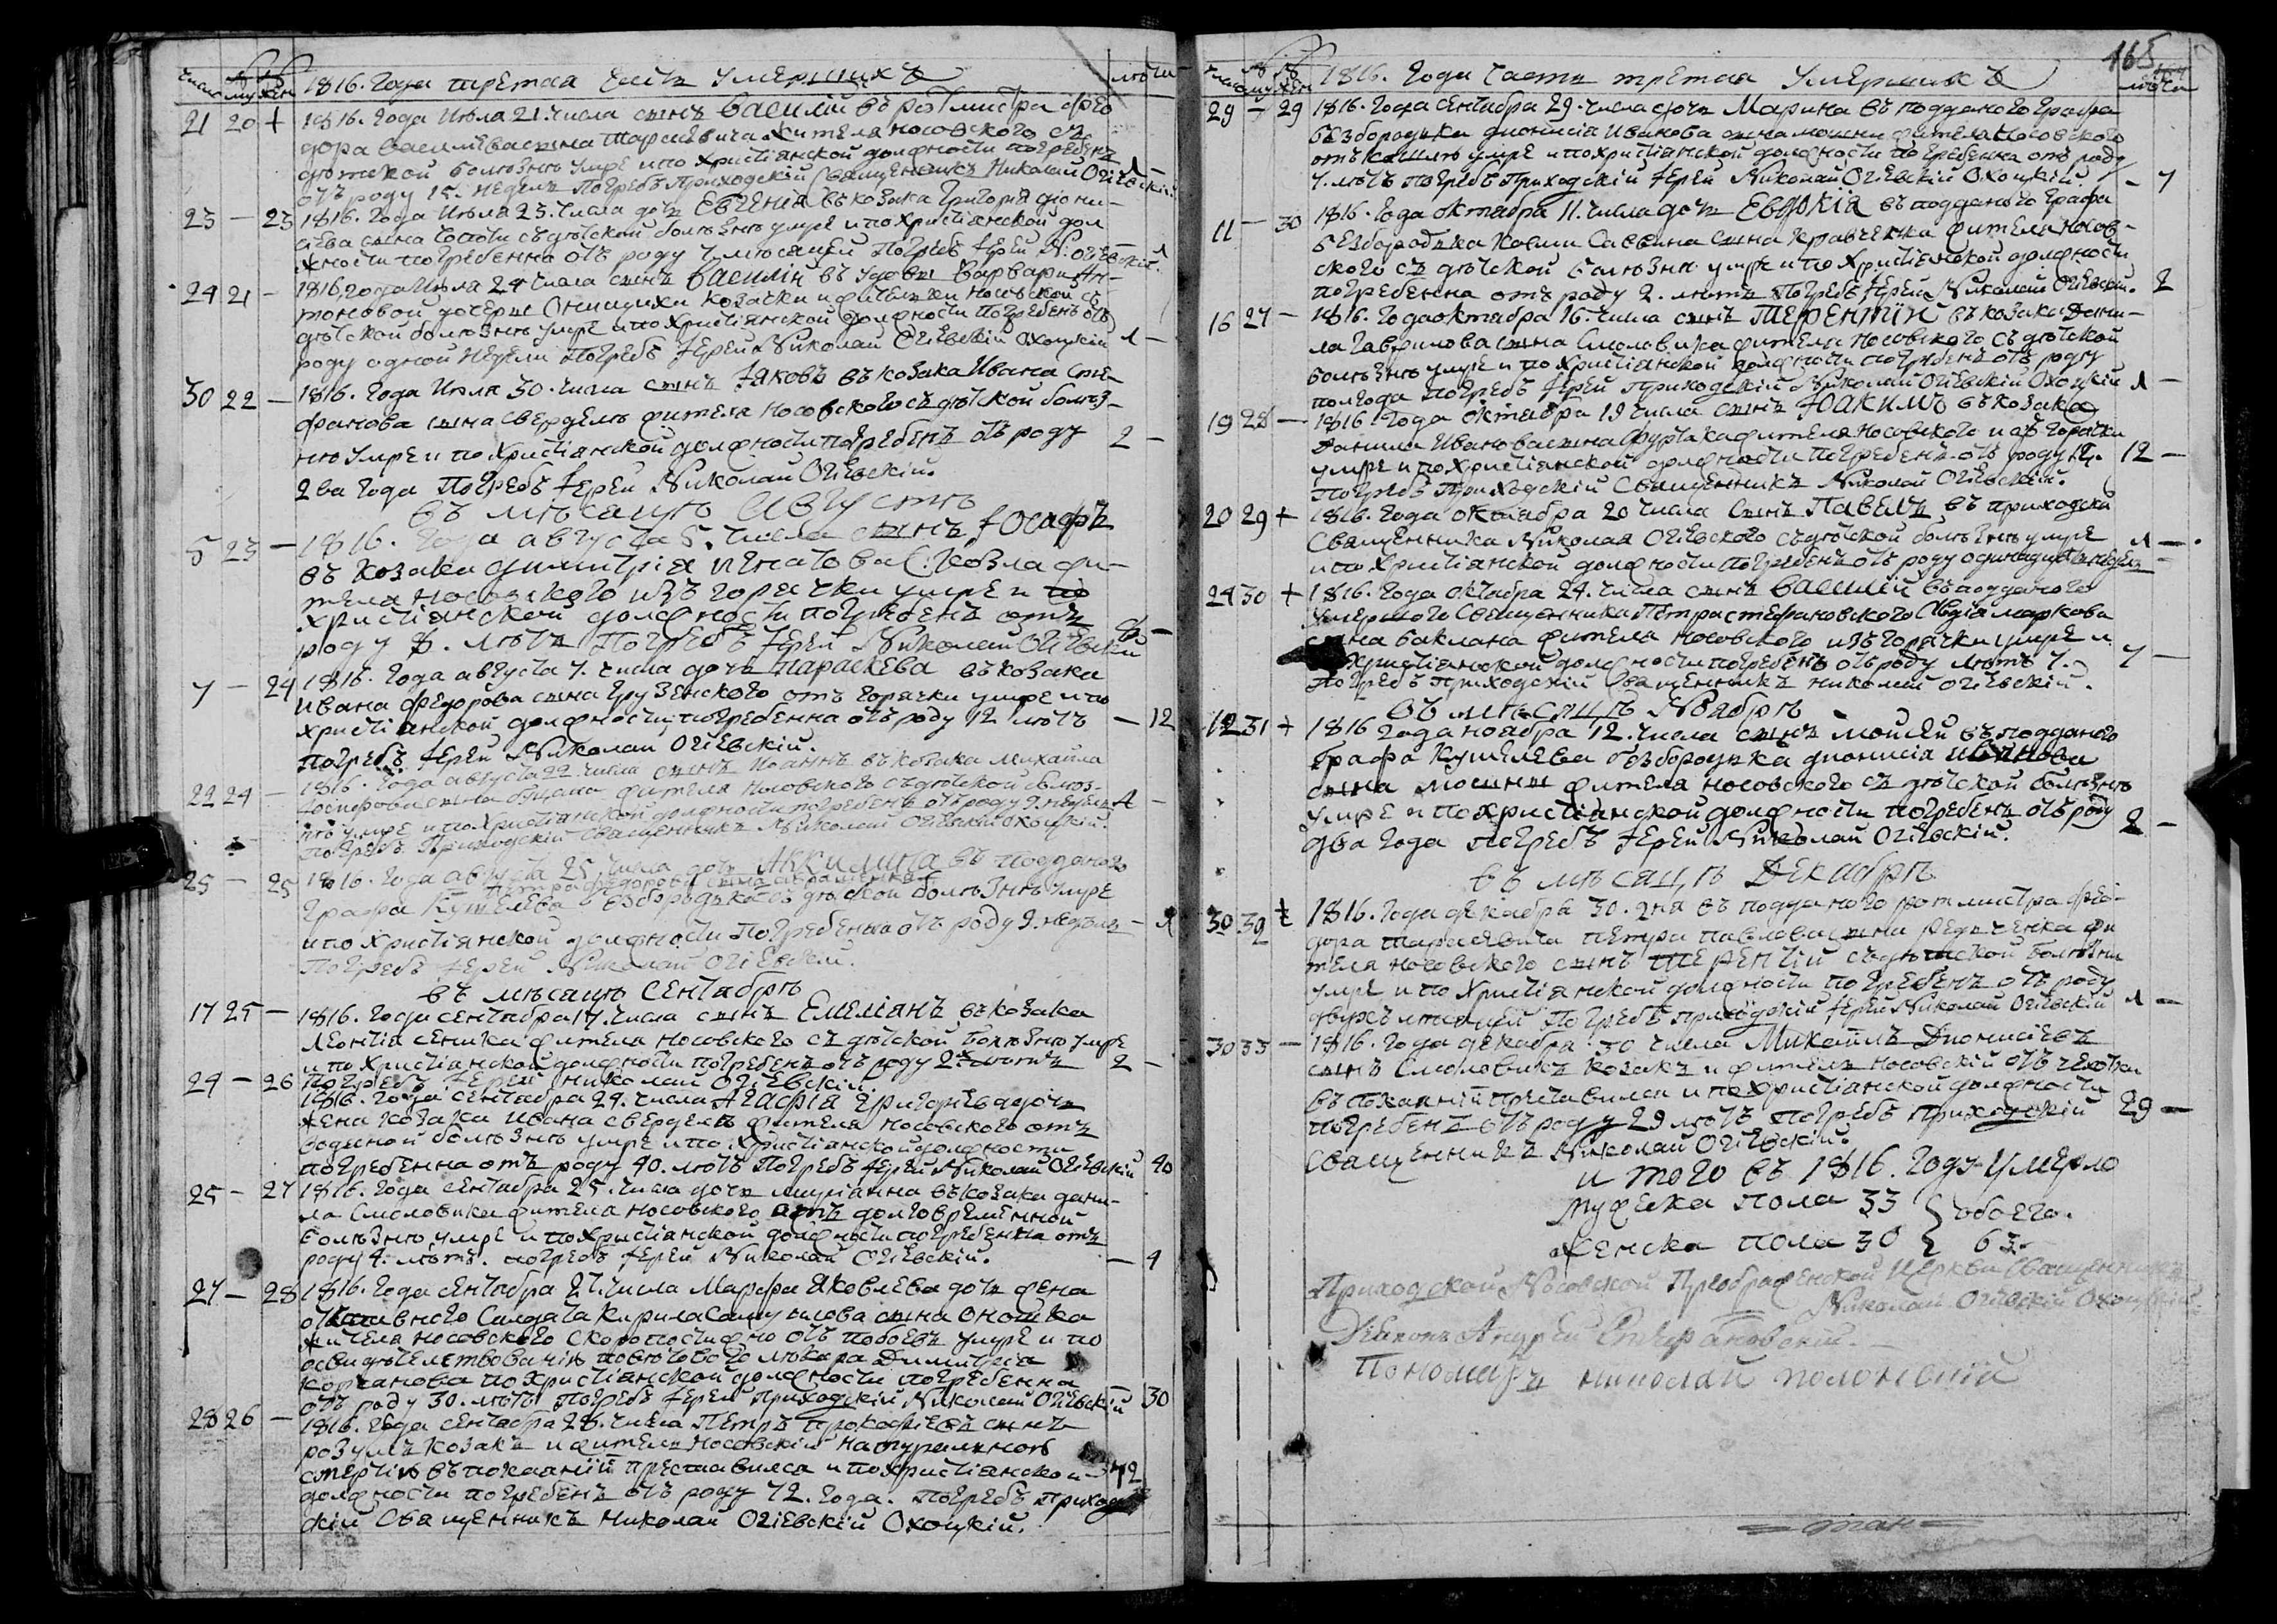 число № № муж жен 1816. Года третая часть Умершихъ лѣта
21 20 + 1816. Года Июля 21. числа сынъ Василій въ ротмистра Фео
дора Васильева сына Тарасевича жителя носовского съ
дѣтской болѣзнѣ умре и по христіянской должности погребенъ
отъ роду 15. недель Погребъ Приходскій Священникъ Николай Огіевскій 1 —
23 — 23 1816. Года Июля 23. числа дочь Евгенія въ козака Григорія Діони-
сіева сына съ дѣтской болѣзнѣ умре и по христіянской дол
жности погребенна отъ роду 7 мѣсяцей Погребъ Іерей Н. Огіевскій. 1
24 21 — 1816 года Июля 24 числа сынъ Василій въ удовы Варвари Ан-
тоновой дочери Онищихи козачки и жительки носовской съ
дѣтской болѣзнѣ умре и по христіянской должности погребенъ отъ
роду одной недели Погребъ Іерей Николай Огіевскій Охоцкій 1 —
30 22 — 1816. Года Июля 30. числа сынъ Іаковъ въ козака Ивана Сте-
фанова сына Свердела жителя носовского съ дѣтской болѣз-
нѣ умре и по христіянской должности погребенъ отъ роду 2 —
2 ва года Погребъ Іерей Николай Огіевскій.
въ мѣсяцѣ Августѣ
5 23 — 1816. Года августа 5. числа сынъ Іосафъ
въ козака Димитрія Игнатова Козла жи-
теля носовского изъ горячки умре и по
христіянской должности погребенъ отъ
роду 8. лѣтъ Погребъ Іерей Николай Огіевскій 8 —
7 — 24 1816. Года августа 7. числа дочь Параскева въ козака
Ивана Федорова сына Грузенского отъ горячки умре и по
христіянской должности погребенна отъ роду 12 лѣтъ — 12
Погребъ Іерей Николай Огіевскій.
22 24 — 1816. Года августа 22 числа сынъ Иоаннъ въ козака Михайла
Іосифова сына жителя носовского съ дѣтской болѣз-
нѣ умре и по христіянской должности погребенъ отъ роду 9. недель 1 —
Погребъ Приходскій Священникъ Николай Огіевскій Охоцкій.
25 — 25 1816. Года августа 25 числа дочь Аккилина въ подданого
Петра Федорова сына
Графа Кушелева Безбородька съ дѣтской болѣзнѣ умре
и по христіянской должности погребенна отъ роду 9. недель — 1
Погребъ Іерей Николай Огіевскій.
въ мѣсяцѣ Сентябрѣ
17 25 — 1816. Года сентября 17. числа сынъ Емеліанъ въ козака
Леонтія Сеника жителя носовского съ дѣтской болѣзнѣ умре
и по христіянской должности погребенъ отъ роду 2х лѣтъ 2 —
Погребъ Іерей Николай Огіевскій.
24 — 26 1816. Года сентября 24. числа Агафія Григорієва дочь
жена козака Ивана Свердела жителя носовского отъ
болѣзнѣ умре и по христіянской должности
погребенна отъ роду 40. лѣтъ Погребъ Іерей Николай Огіевскій 40
25 — 27 1816. Года сентября 25. числа дочь Маріанна въ козака Дани-
ла Смоловика жителя носовского отъ долговременной
болѣзнѣ умре и по христіянской должности погребенна отъ
роду 4. лѣтъ. погребъ Іерей Николай Огіевскій. — 4
27 — 28 1816. Года сентября 27. числа Марфа Яковлева дочь жена
Солдата Кирила Самуилова сына Оношка
жителя носовского скоропостижно отъ побоевъ умре и по
освидѣтелствованію повѣтового лѣкаря Димитрія
Корчанова по христіянской должности погребенна
отъ роду 30. лѣтъ Погребъ Іерей Приходскій Николай Огіевскій 30
28 26 — 1816. Года сентября 28. числа Петръ Прокофіевъ сынъ
Розумъ козакъ и житель носовскій натуралною
смертію въ покаяніи преставился и по христіянской — 72
должности погребенъ отъ роду 72. года. Погребъ Приход
скій Священникъ Николай Огіевскій Охоцкій.
165
число № № муж жен 1816. Года часть третая Умершихъ лѣта
29 — 29 1816. Года сентября 29. числа дочь Марина въ подданого Графа
Безбородька Дионисія Иванова сына Мошни жителя носовского
отъ кашлю умре и по христіянской должности погребенна отъ роду
7. лѣтъ Погребъ Приходскій Іерей Николай Огіевскій Охоцкій. — 7
11 — 30 1816. Года октября 11. числа дочь Евдокія въ подданого Графа
Безбородька Космы Саввина сына Кравченка жителя носов-
ского съ дѣтской болѣзни умре и по христіянской должности
погребенна отъ роду 2. лѣтъ Погребъ Іерей Николай Огіевскій. 2
16 27 — 1816. Года октября 16. числа сынъ Терентій въ козака Дани-
ла Гаврилова сына Смоловика жителя носовского съ дѣтской
болѣзнѣ умре и по христіянской должности погребенъ отъ роду
полгода Погребъ Іерей Приходскій Николай Огіевскій Охоцкій 1 —
19 28 — 1816. Года октября 19 числа сынъ Іоакимъ въ козака
Данила Иванова сына жителя носовского изъ горячки
умре и по христіянской должности погребенъ отъ роду 12. 12 —
Погребъ Приходскій Священникъ Николай Огіевскій.
20 29 + 1816. Года октября 20 числа сынъ Павелъ въ приходски
Священника Николая Огіевского съ дѣтской болѣзнѣ умре 1 —
и по христіянской должности погребенъ отъ роду одинадцать недель
24 30 + 1816. Года октября 24. числа сынъ Василій въ подданого
умершого Священника Петра Стефановского Овдія Маркова
сына Баклана жителя носовского изъ горячки умре и
христіянской должности погребенъ отъ роду лѣтъ 7. 7 —
Погребъ Приходскій Священникъ Николай Огіевскій.
въ мѣсяцѣ Ноябрѣ
12 31 + 1816 Года ноября 12. числа сынъ Моисей въ подданого
Графа Кушелева Безбородька Дионисія Иванова
сына Мошны жителя носовского съ дѣтской болѣзнѣ
умре и по христіянской должности погребенъ отъ роду
два года Погребъ Іерей Николай Огіевскій. 2 —
въ мѣсяцѣ Декабрѣ
30 32 + 1816. Года декабря 30. дня въ подданого ротмистра Фео-
дора Тарасевича Петра Павлова сына Редьченка жи
теля носовского сынъ Терентій съ дѣтской болѣзни
умре и по христіянской должности погребенъ отъ роду
двухъ мѣсяцей Погребъ Приходскій Іерей Николай Огіевскій 1 —
30 33 — 1816. Года декабря 30 числа Михаилъ Дионисіевъ
сынъ Смоловикъ козакъ и житель носовскій отъ чехотки
въ покаяніи преставился и по христіянской должности
погребенъ отъ роду 29 лѣтъ Погребъ Приходскій 29 —
Священникъ Николай Огіевскій.
итого въ 1816. Году умерло
мужеска пола 33 обоего.
женска пола 30 63.
Приходской Носовской Преображенской Церкви Священникъ
Николай Огіевскій Охоцкій.
Діаконъ Андрей Стефановскій.
Пономарь Николай Полонскій